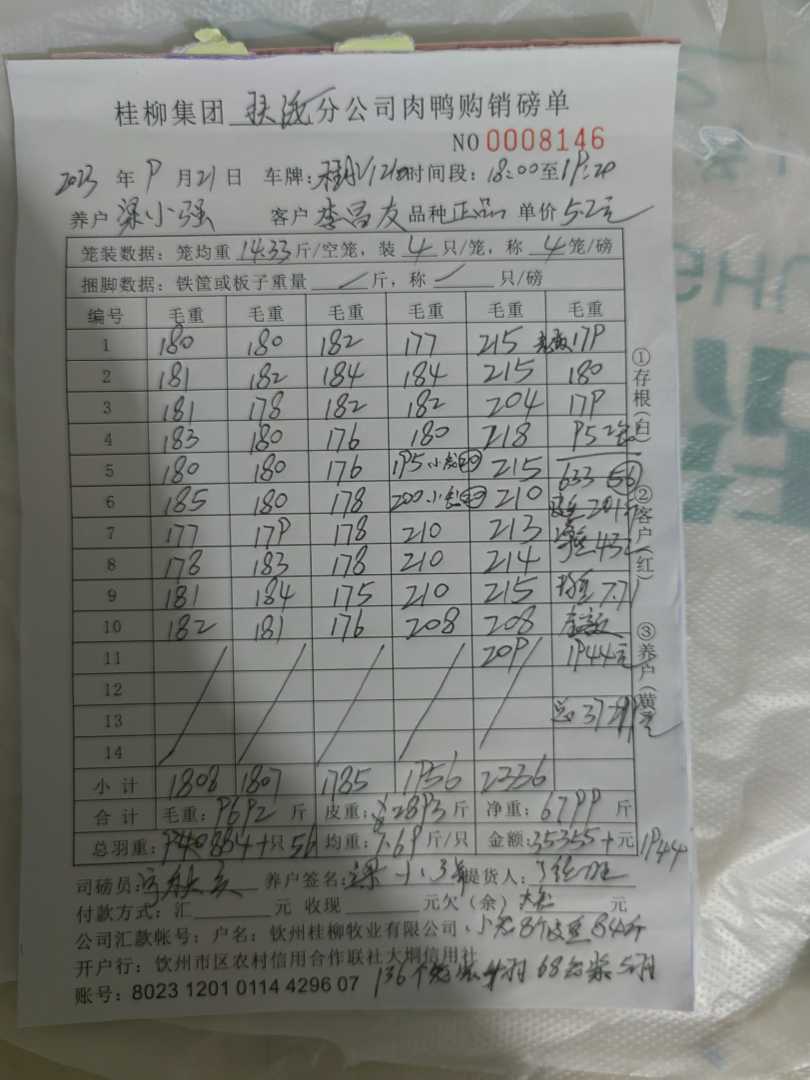 桂柳集团 分公司肉鸭购销磅单
NO 0008146
2023 年 9 月 21 日 车牌: 时间段: 18:00至19:20
养户 梁小强 客户 李昌友 品种 正品 单价 5.2元
笼装数据: 笼均重 14.33 斤/空笼, 装 4 只/笼, 称 4 笼/磅
捆脚数据: 铁筐或板子重量 斤, 称 只/磅
编号 毛重 毛重 毛重 毛重 毛重 毛重
1 180 180 182 177 215 179
2 181 182 184 184 215 180
3 181 178 182 182 204 179
4 183 180 176 180 218 95
5 180 180 176 195 小笼 215 633 56
6 185 180 178 200 小笼 210
7 177 179 178 210 213
8 178 183 178 210 214
9 181 184 175 210 215 7.71
10 182 181 176 208 208
11 209 1944元
12
13 总
14
小计 1808 1807 1785 1956 2336
合计 毛重: 9692 斤 皮重: 2893 斤 净重: 6799 斤
总羽重: 884+只56 均重: 7.69 斤/只 金额: 35355+ 元 1944
司磅员: 养户签名: 梁小强 提货人:
付款方式: 汇 元 收现 元欠(余) 元
公司汇款帐号: 户名: 钦州桂柳牧业有限公司 小笼8个皮重84斤
开户行: 钦州市区农村信用合作联社大垌信用社
账号: 8023 1201 0114 4296 07 136个笼装4羽 68笼装5羽
①存根(白) ②客户(红) ③养户(黄)